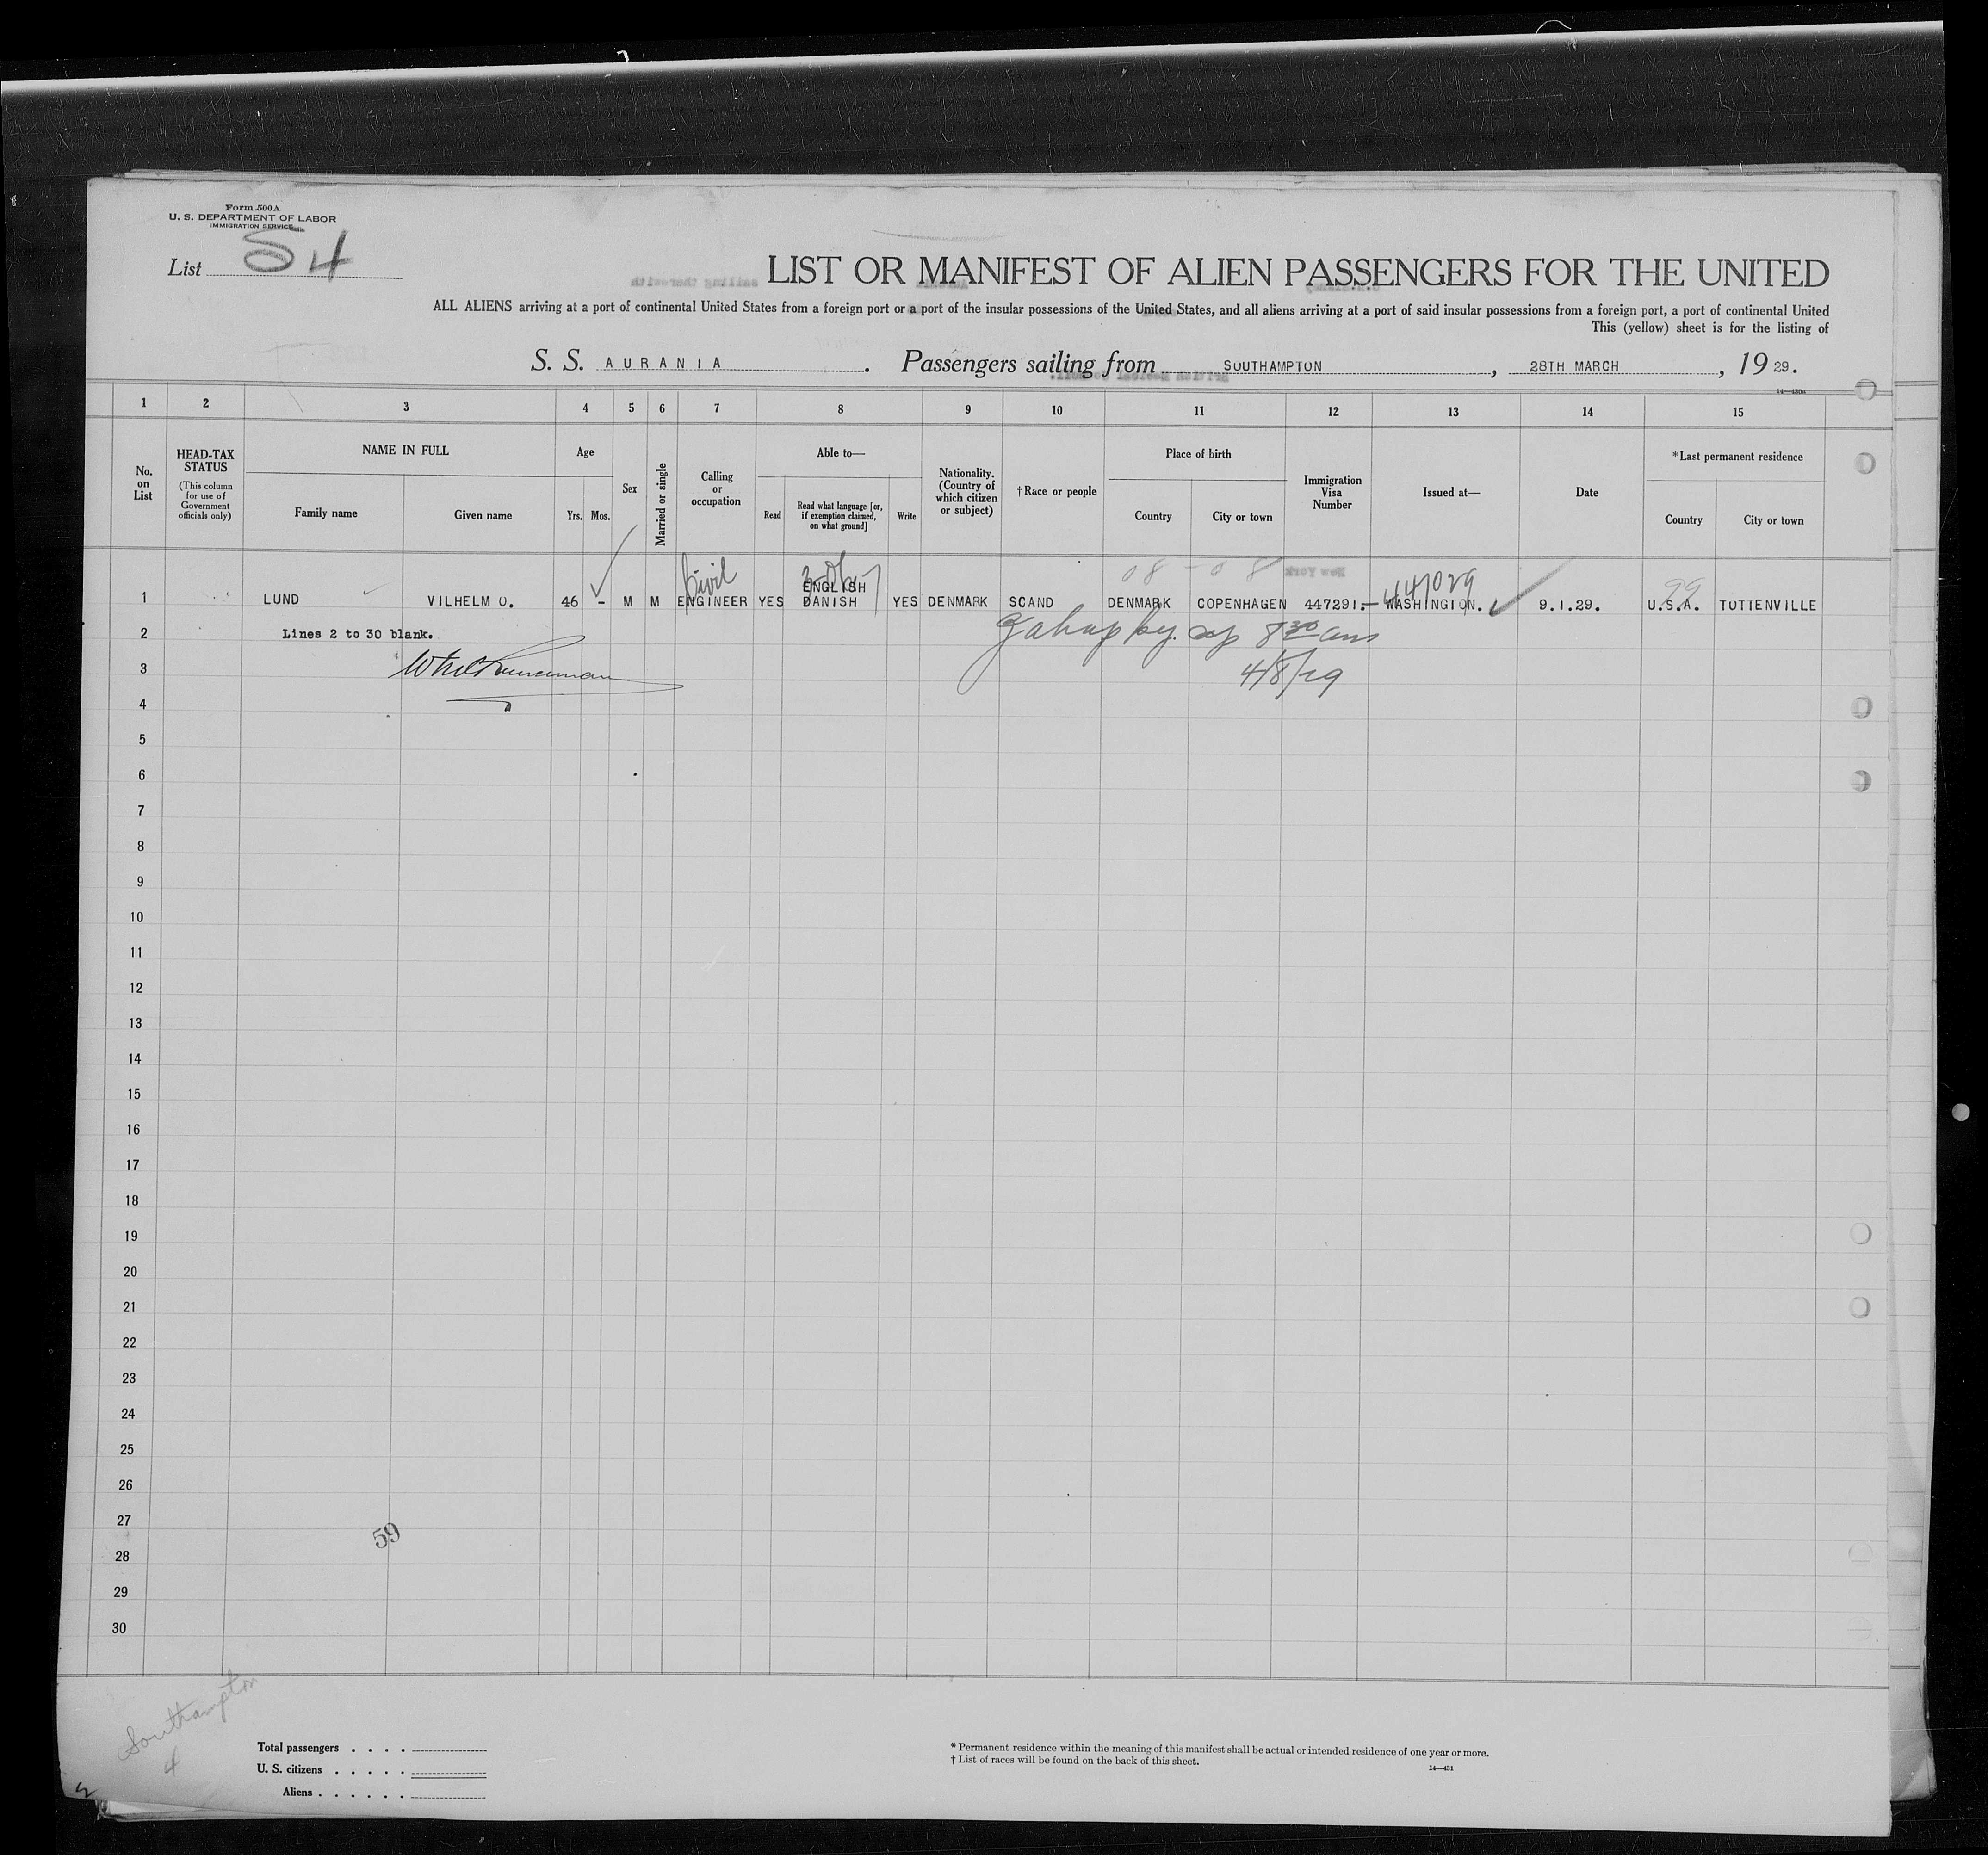 Form 500A
U. S. DEPARTMENT OF LABOR
IMMIGRATION SERVICE
List 54
LIST OR MANIFEST OF ALIEN PASSENGERS FOR THE UNITED
ALL ALIENS arriving at a port of continental United States from a foreign port or a port of the insular possessions of the United States, and all aliens arriving at a port of said insular possessions from a foreign port, a port of continental United
This (yellow) sheet is for the listing of
S. S. AURANIA. Passengers sailing from SOUTHAMPTON, 28TH MARCH, 19 29.
1 2 3 4 5 6 7 8 9 10 11 12 13 14 15
No. on List
HEAD-TAX STATUS (This column for use of Government officials only)
NAME IN FULL
Family name Given name
Age
Yrs. Mos.
Sex
Married or single
Calling or occupation
Able to—
Read
Read what language [or, if exemption claimed, on what ground]
Write
Nationality. (Country of which citizen or subject)
†Race or people
Place of birth
Country City or town
Immigration Visa Number
Issued at—
Date
*Last permanent residence
Country City or town
Civil ENGLISH 08 - 08 447029 99
1 LUND VILHELM O. 46 - M M ENGINEER YES DANISH YES DENMARK SCAND DENMARK COPENHAGEN 447291.- WASHINGTON. 9.1.29. U.S.A. TOTTENVILLE
2 Lines 2 to 30 blank. 8 30 am
3 4/8/29
4
5
6
7
8
9
10
11
12
13
14
15
16
17
18
19
20
21
22
23
24
25
26
27
59
28
29
30
Southampton
4
Total passengers . . . .
U. S. citizens . . . . .
Aliens . . . . . .
* Permanent residence within the meaning of this manifest shall be actual or intended residence of one year or more.
† List of races will be found on the back of this sheet.
14—431